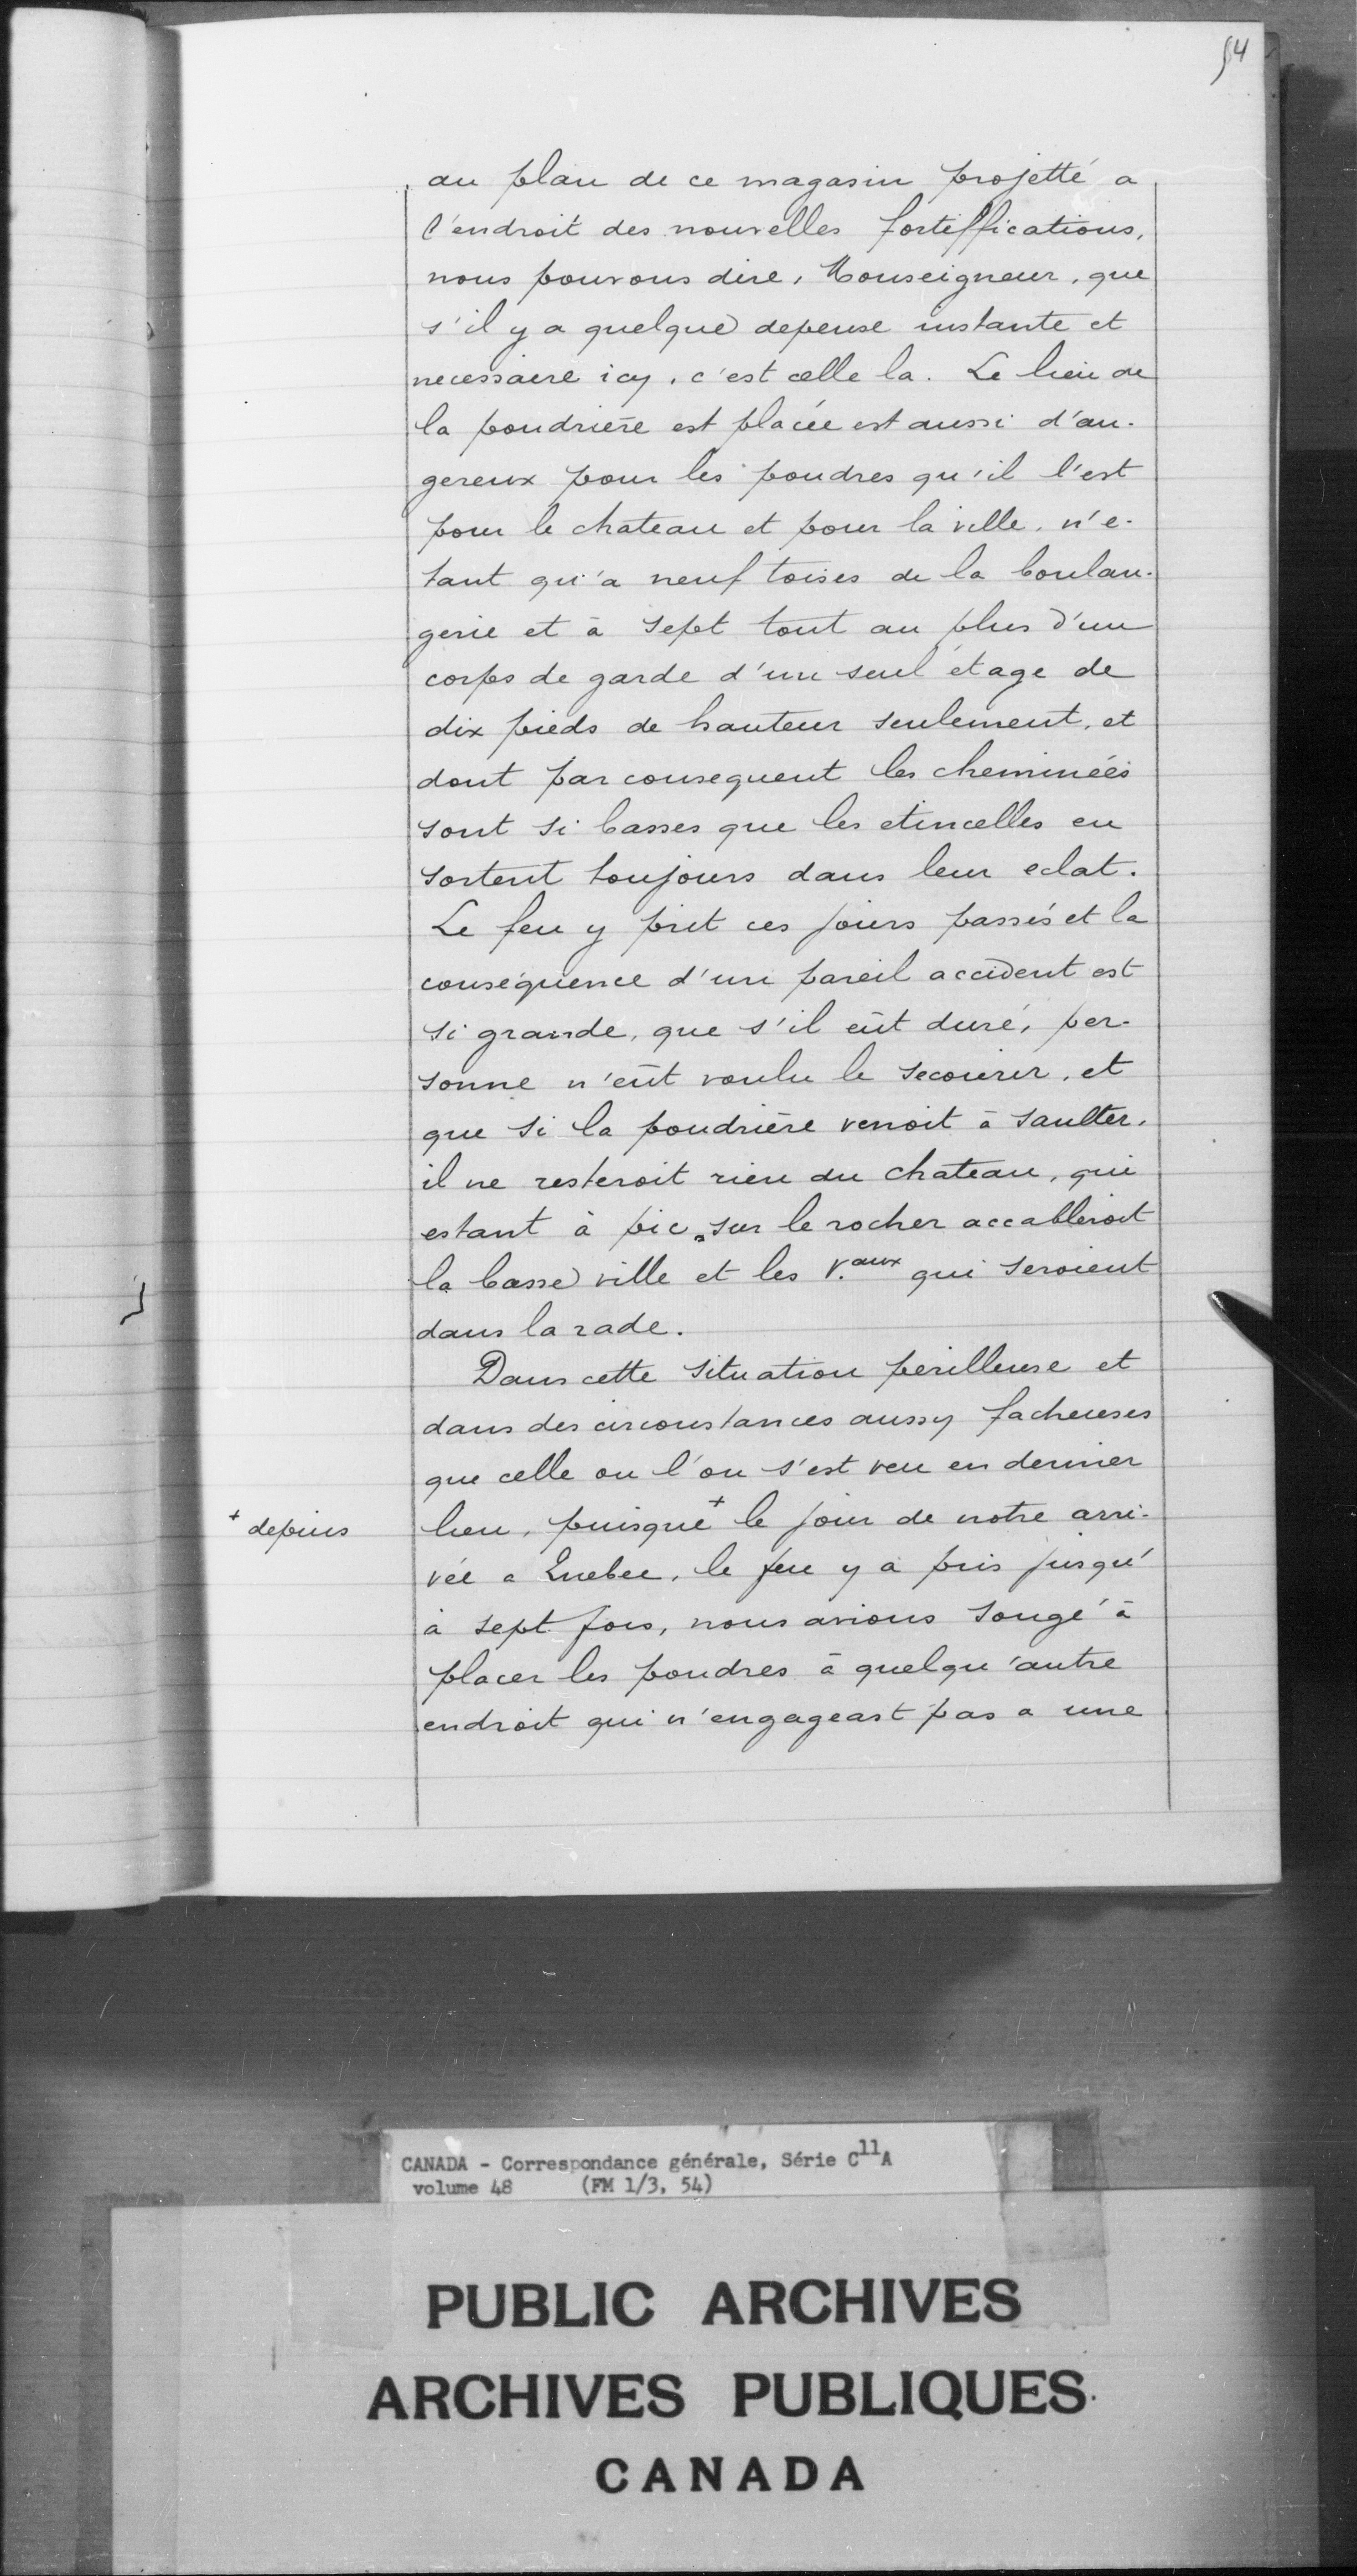 54
au plan de ce magasin projetté a
l'endroit des nouvelles fortiffications,
nous pouvons dire, Monseigneur, que
s'il y a quelque depense instante et
necessaire icy, c'est celle la. Le lieu ou
la poudrière est placée est aussi d'an-
gereux pour les poudres qu'il l'est
pour le chateau et pour la ville, n'e-
tant qu'a neuf toises de la boulan-
gerie et à sept tout au plus d'un
corps de garde d'un seul étage de
dix pieds de hauteur seulement, et
dont par consequent les cheminées
sont si basses que les etincelles en
sortent toujours dans leur eclat.
Le feu y prit ces jours passés et la
conséquence d'un pareil accident est
si grande, que s'il eût duré, per-
sonne n'eût voulu le secourir, et
que si la poudrière venoit à saulter,
il ne resteroit rien du chateau, qui
estant à pic sur le rocher accableroit
la basse ville et les V.aux qui seroient
dans la rade.
Dans cette situation perilleuse et
dans des circonstances aussy facheuses
que celle ou l'on s'est veu en dernier
+ depuis
lieu, puisque + le jour de notre arri-
vée a Quebec, le feu y a pris jusqu'
à sept fois, nous avions songé à
placer les poudres à quelqu'autre
endroit qui n'engageast pas a une
CANADA - Correspondance générale, Série C11A
volume 48 (FM 1/3, 54)
PUBLIC ARCHIVES
ARCHIVES PUBLIQUES
CANADA